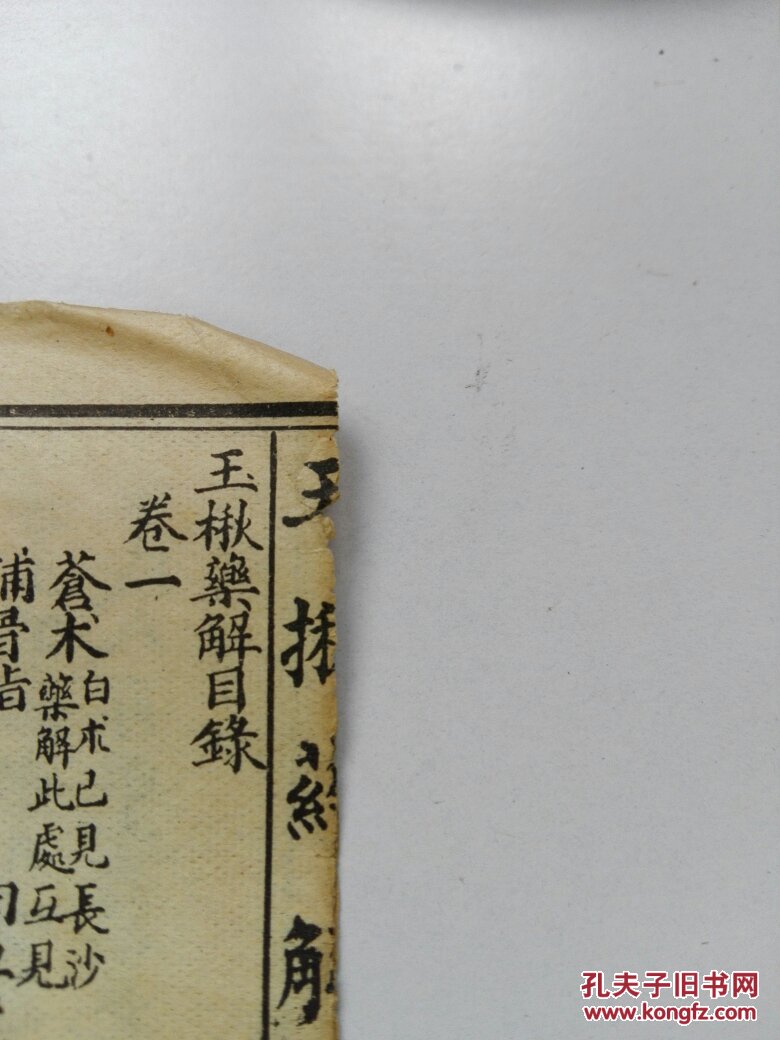 玉楸藥解
玉楸藥解目錄
卷一
蒼术白朮已見長沙
藥解此處互見
補骨脂
孔夫子旧书网
www.kongfz.com